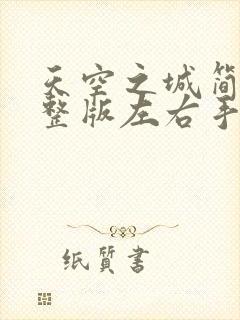 天空之城简
整版左右手
纸質書